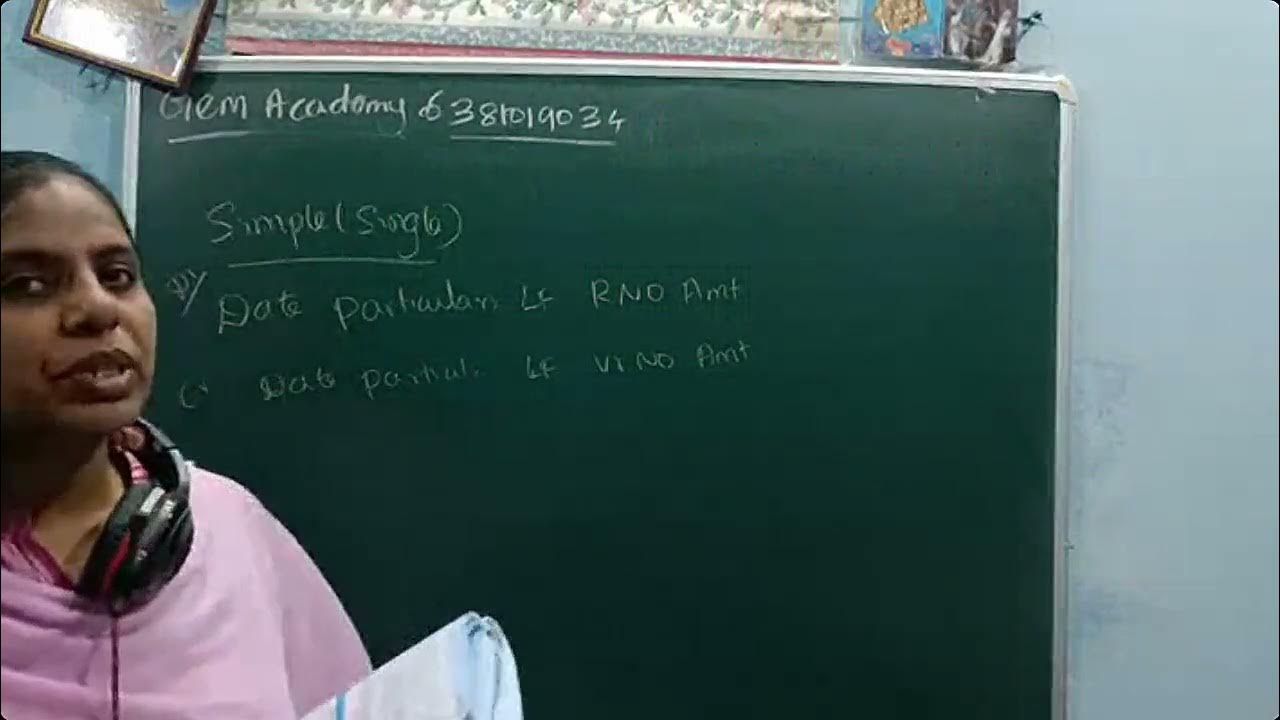 Gem Academy 6381019034
Simple (Single)
Dr Date Particulars LF RNO Amt
Cr Date particul. LF VrNO Amt